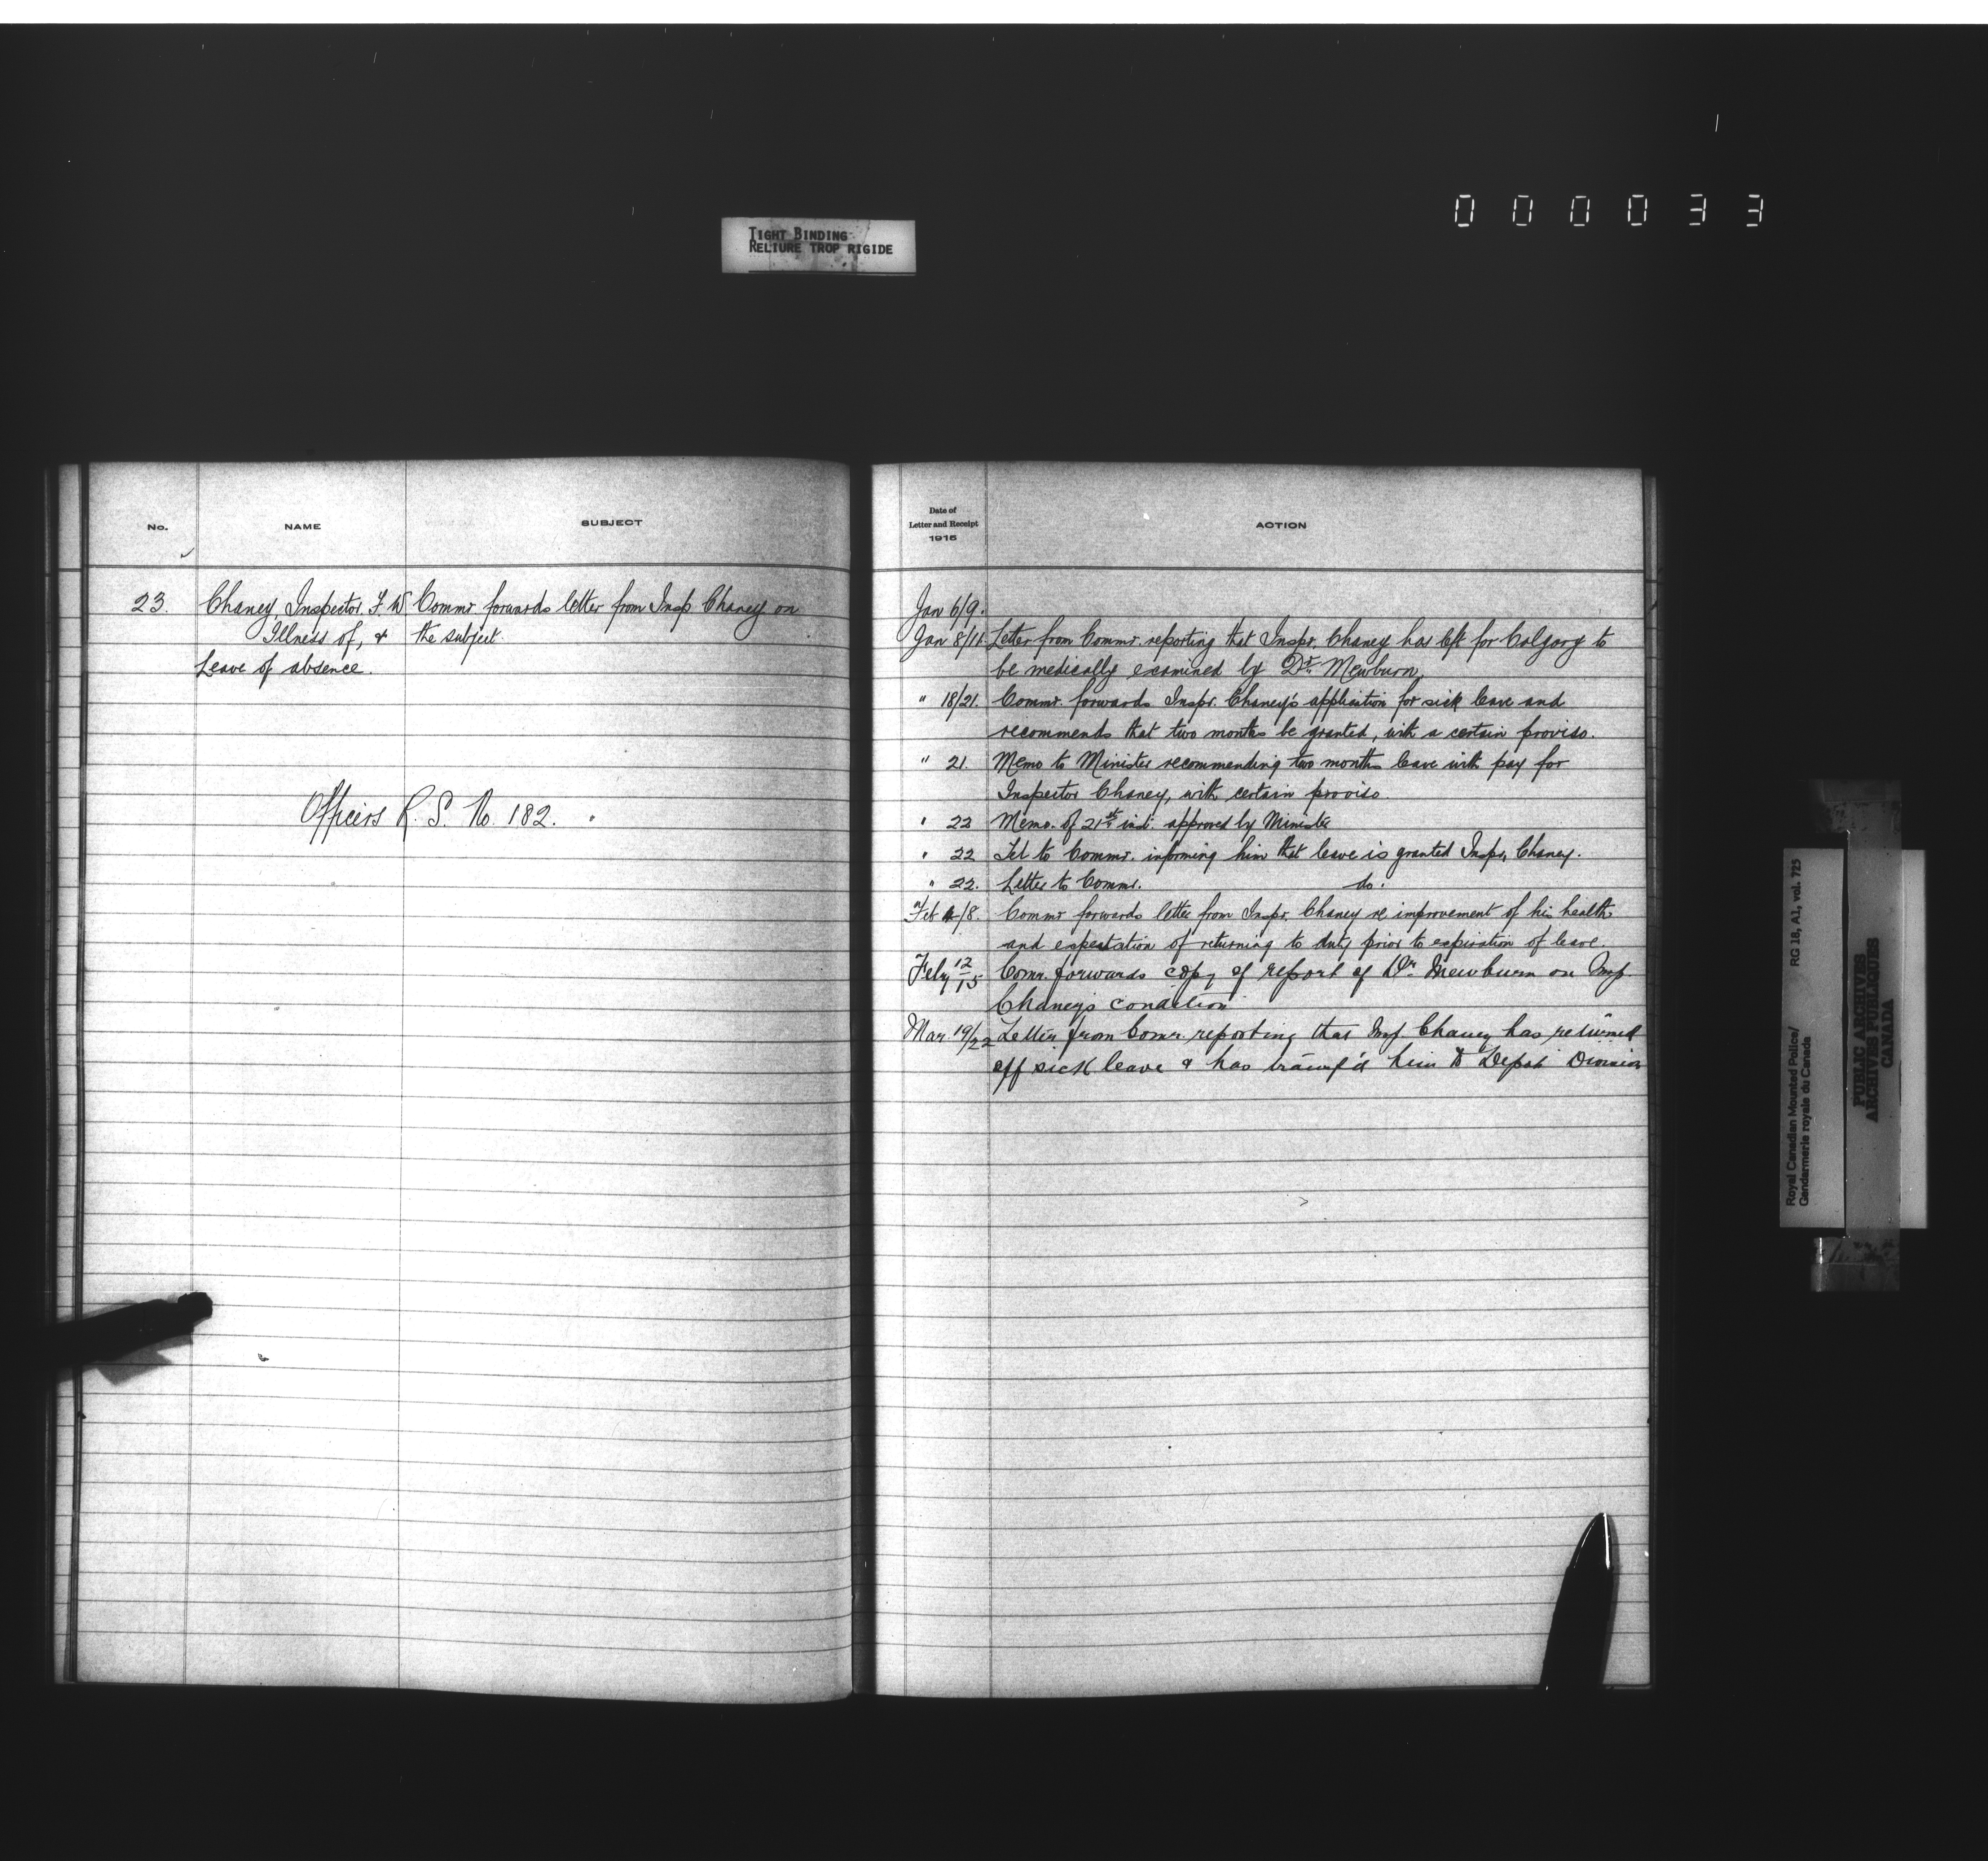 000033
TIGHT BINDING
RELIURE TROP RIGIDE
No.
NAME
SUBJECT
23. Chaney, Inspector. F. W Commr forwards letter from Insp. Chaney on
Illness of, & the subject.
Leave of absence.
Officers R. S. No. 182.
Date of
Letter and Receipt
1915
ACTION
Jan 6/9.
Jan 8/11. Letter from Commr. reporting that Inspr. Chaney has left for Calgary to
be medically examined by Dr. Mewburn.
" 18/21. Commr. forwards Inspr. Chaney's application for sick leave and
recommends that two months be granted, with a certain proviso.
" 21. Memo to Minister recommending two months leave with pay for
Inspector Chaney, with certain proviso.
" 22 Memo. of 21st inst. approved by Minister
" 22 Tel to Commr. informing him that leave is granted Inspr. Chaney.
" 22. Letter to Commr. do.
Feb 4/8. Commr forwards letter from Inspr. Chaney re improvement of his health
and expectation of returning to duty prior to expiration of leave.
Feby 12/15 Comr. forwards copy of report of Dr Mewburn on Insp.
Chaney's condition
Mar. 19/22 Letter from Comr. reporting that Insp Chaney has returned
off sick leave & has transf'd him to Depot Division
Royal Canadian Mounted Police/
Gendarmerie royale du Canada
RG 18, A1, vol. 725
PUBLIC ARCHIVES
ARCHIVES PUBLIQUES
CANADA